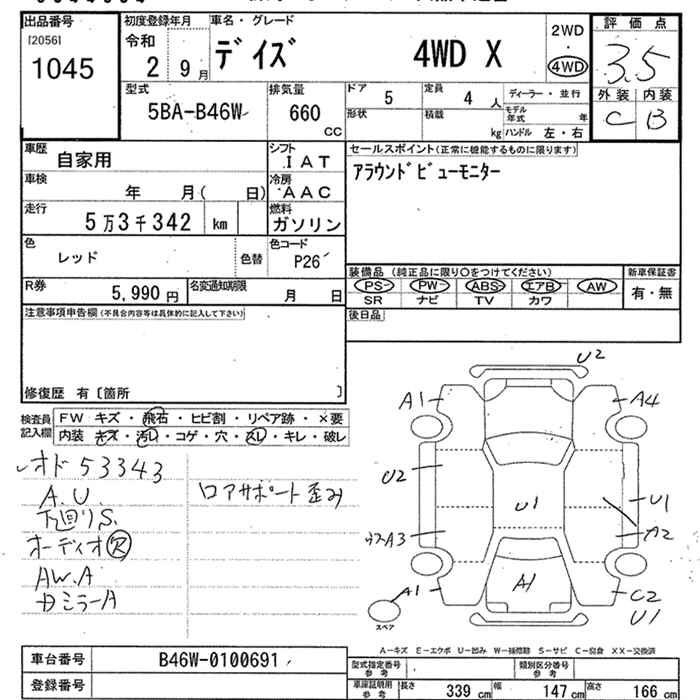 出品番号 初度登録年月 車名・グレード 2WD 評価点
[2056] 令和 デイズ 4WD X ・ 3.5
1045 2 9月 4WD
型式 排気量 ドア 5 定員 4人 ディーラー・並行 外装 内装
5BA-B46W 660 cc 形状 積載 kg モデル年式 年 C B
ハンドル 左・右
車歴 自家用 シフト IAT セールスポイント(正常に機能するものに限ります)
車検 年 月( 日) 冷房 AAC アラウンドビューモニター
走行 5万3千342 km 燃料 ガソリン
色 レッド 色替 色コード P26
装備品(純正品に限り○をつけてください) 新車保証書
R券 5,990円 名変通知期限 月 日 PS PW ABS エアB AW 有・無
SR ナビ TV カワ
注意事項申告欄(不具合内容等は具体的に記入して下さい) 後日品
修復歴 有〔箇所 〕
検査員記入欄 FW キズ・飛石・ヒビ割・リペア跡・×要
内装 キズ・汚レ・コゲ・穴・スレ・キレ・破レ
オド53343
A.U. ロアサポート歪み
下廻りS.
オーディオ欠
AW.A
ミラーA
U2
A1 A4
U2
U1 U1
A3 A2
A1 A1 C2
U1
スペア
A-キズ E-エクボ U-凹み W-補修跡 S-サビ C-腐食 XX-交換済
車台番号 B46W-0100691 型式指定番号 参考 類別区分番号 参考
登録番号 車庫証明用 参考 長さ 339 cm 幅 147 cm 高さ 166 cm